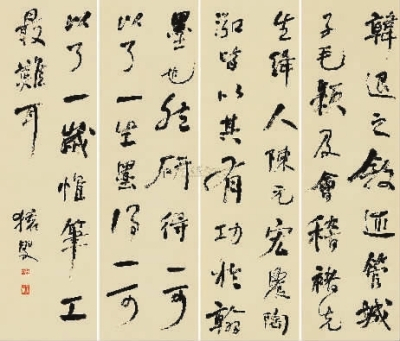 韓退之敘述管城
子毛穎及會稽褚先
生絳人陳元宏農陶
泓皆以其有功於翰
墨也然研得一可
以了一生墨得一可
以了一歲惟筆工
最難耳
猨叟